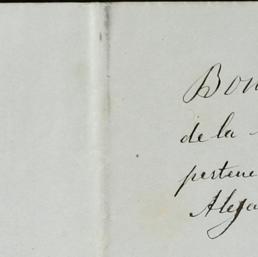 Bon
de la
pertene
Aleja